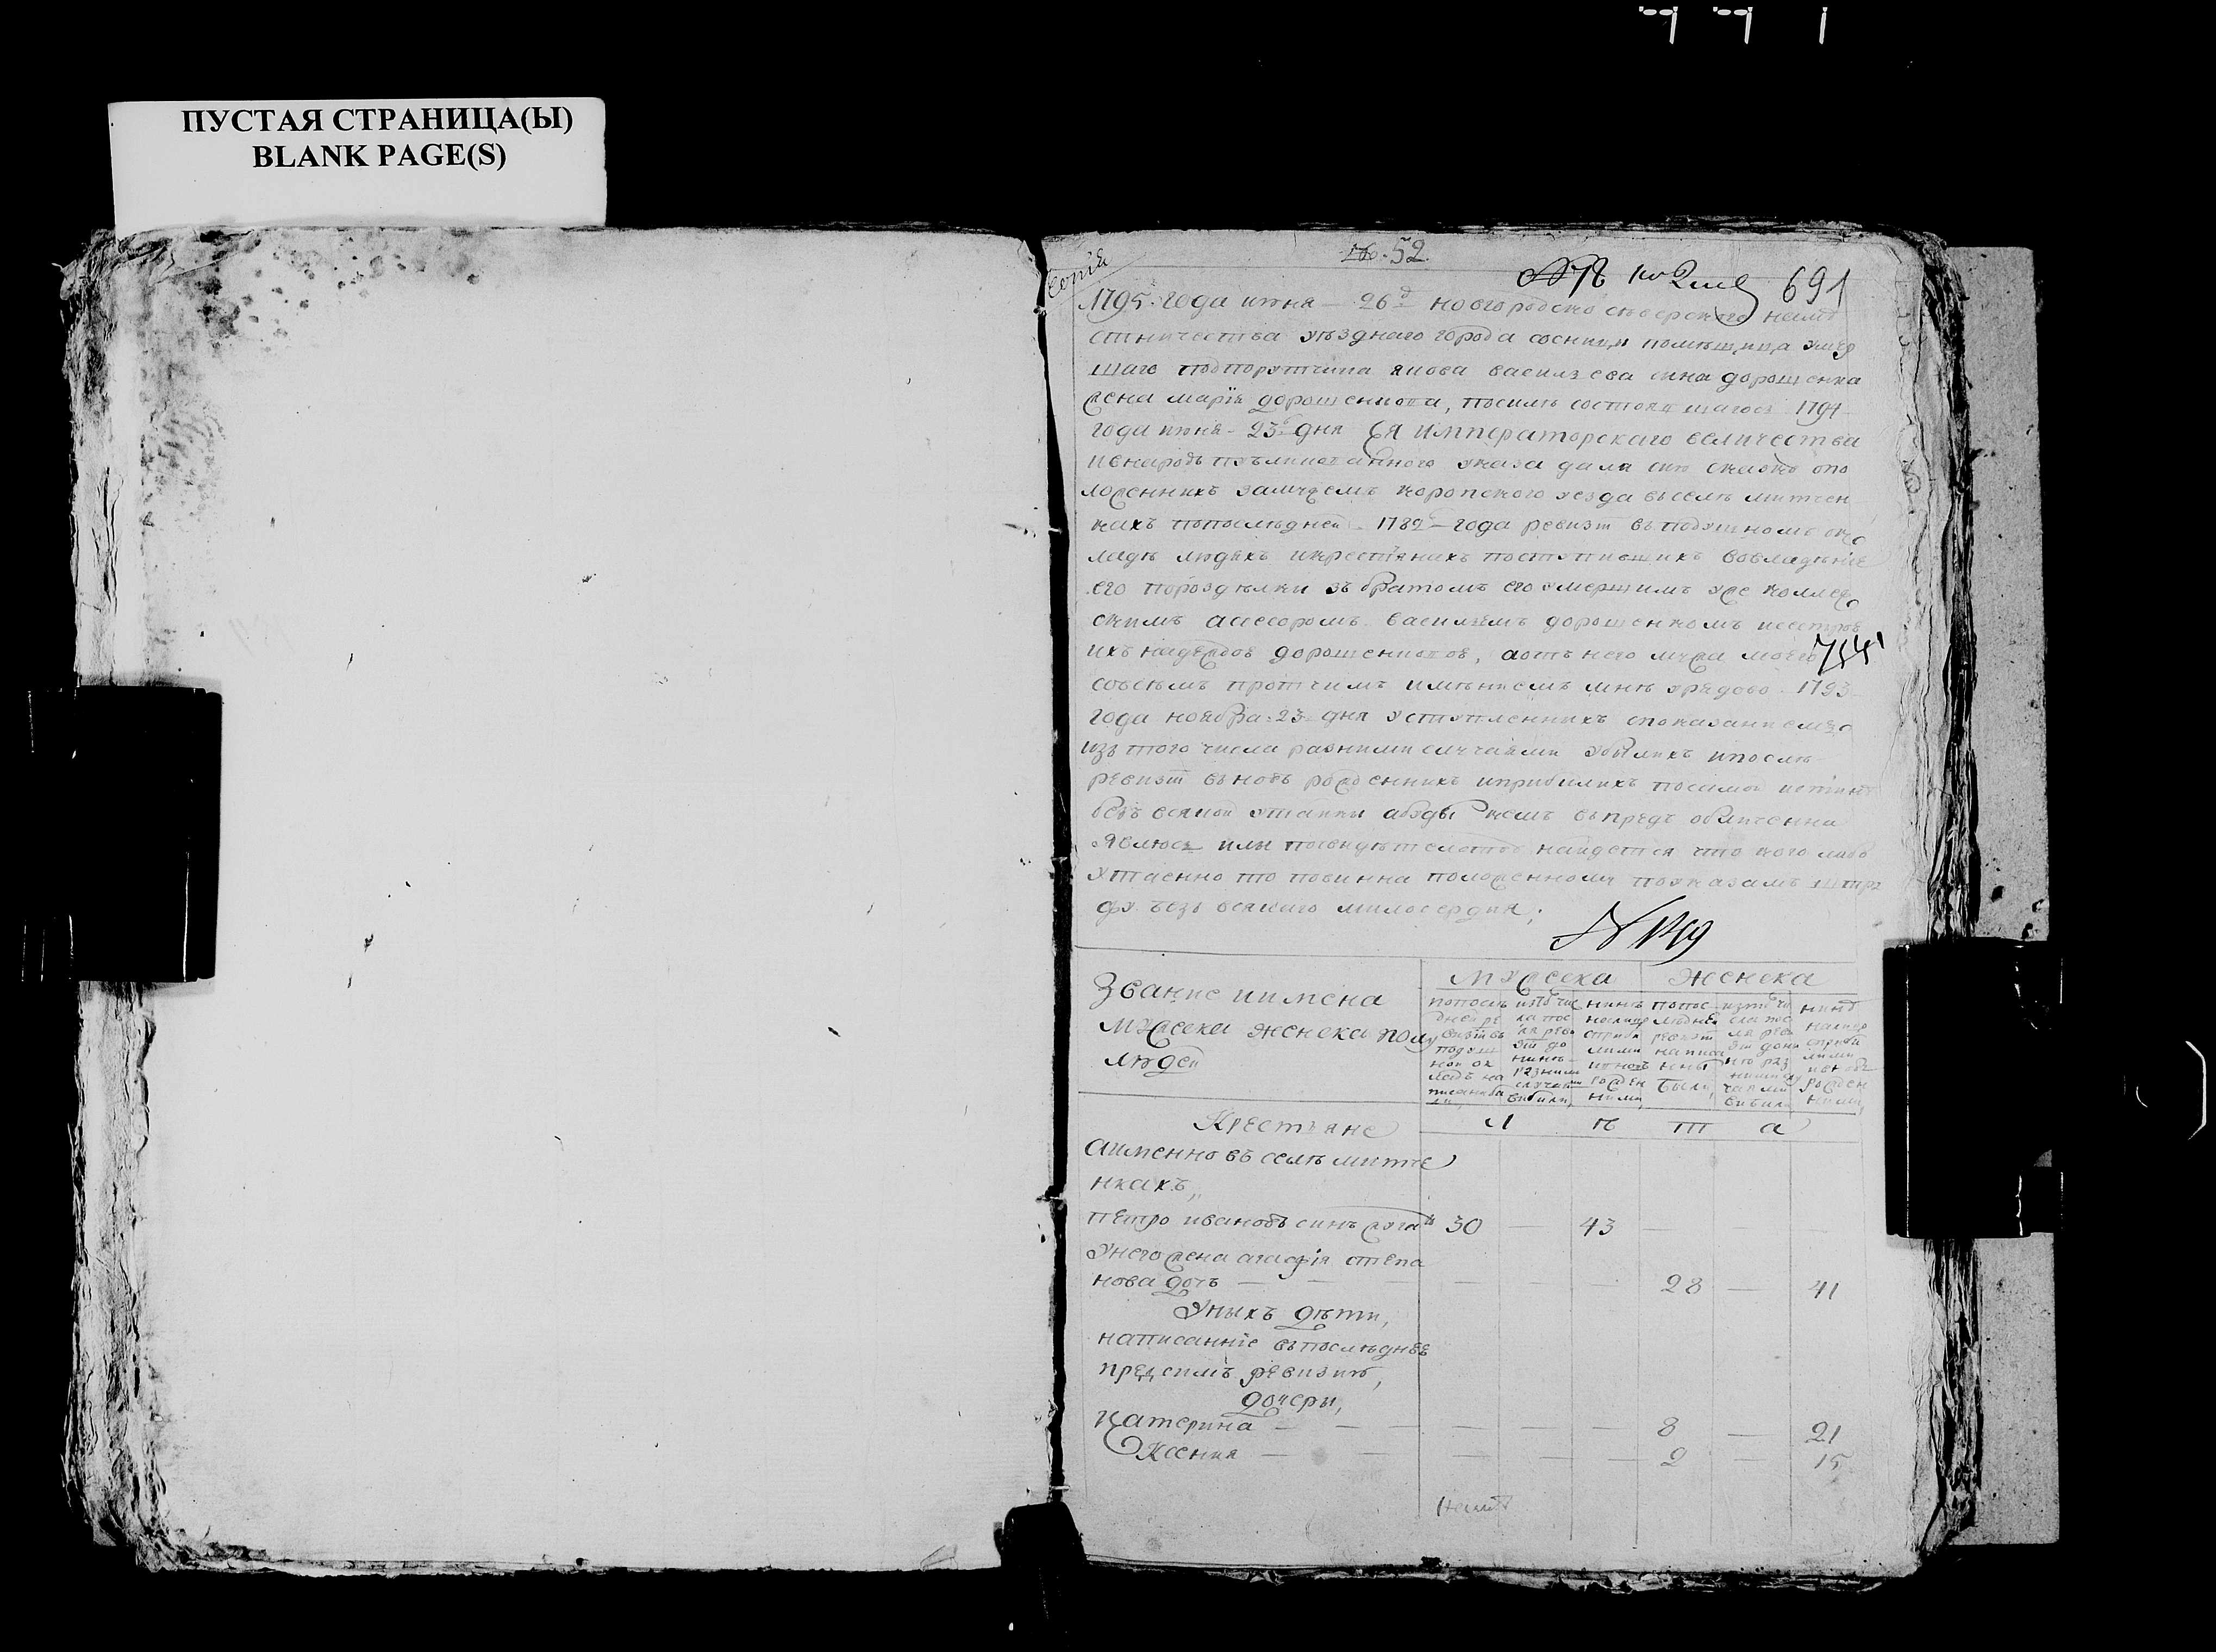 ПУСТАЯ СТРАНИЦА(Ы)
BLANK PAGE(S)
Копія
№ 52.
691
1795. года июня — 26 д новгородско северского намѣ
стничества уѣзднаго города сосници помѣщица умер
шаго подпорутчика якова василъева сина дорошенка
жена марія дорошенкова, посилѣ состоявшагося 1794
года июня - 23 дня Ея императорскаго величества
ивнародъ публикованного указа дала сию скаску опо
ложеннихъ замужемъ коропского уезда вьселѣ митчен
кахъ попослѣдней 1782 года ревизіи вьподушномъ окъ
ладѣ людехъ икрестянихъ поступившихъ вовладѣние
его пороздѣлки зъ братомъ его умершимъ уже коллеж
скимъ асессоромъ василиемъ дорошенкомъ исестрою
ихъ дорошенковою, аотъ него мужа моего
754
совсѣмъ протчимъ имѣниемъ мнѣ урядово 1793
года ноября 23 дня уступленнихъ споказаниемъ
изъ того числа разними случаями убилихъ ипослѣ
ревизіи вьновь рожденнихъ иприбилихъ посамой истинѣ
безъ всякой утайки абуде кемъ вьпредъ обличенна
явлюся или посвидѣтелству найдется что кого либо
утаенно то повинна положенному поуказамъ штра
фу безъ всякаго милосердия;
№ 149
Звание иимена
мужеска женска полу
людей
Мужеска Женска
попослѣ
дней ре
визіи въ
подуш
ной ок
ладъ на
писани
изъ чис
ла пос
ля реви
зіи до
нинѣ
разними
случаями
вибили,
нинѣ
налицо
сприби
лими
ивновь
рожден
ними,
попос
лѣдней
ревизіи
написа
нны
были,
изъ чи
сла пос
ля реви
зіи дони
нѣ раз
ними слу
чаями
вибили
нинѣ
налицо
сприби
лими
ивновь
рожден
ними,
Крестяне
л ѣ т а
аименно въ селѣ митче
нкахъ,,
петро ивановъ синъ 30 — 43 — — —
унего жена агафія степа
нова дочь — — — — — 28 — 41
Унихъ дѣти,
написанніе вьпослѣднее
предъ симъ ревизию,
дочери,
Катерина — — — — — 8 — 21
Ксения — — — — — 2 — 15